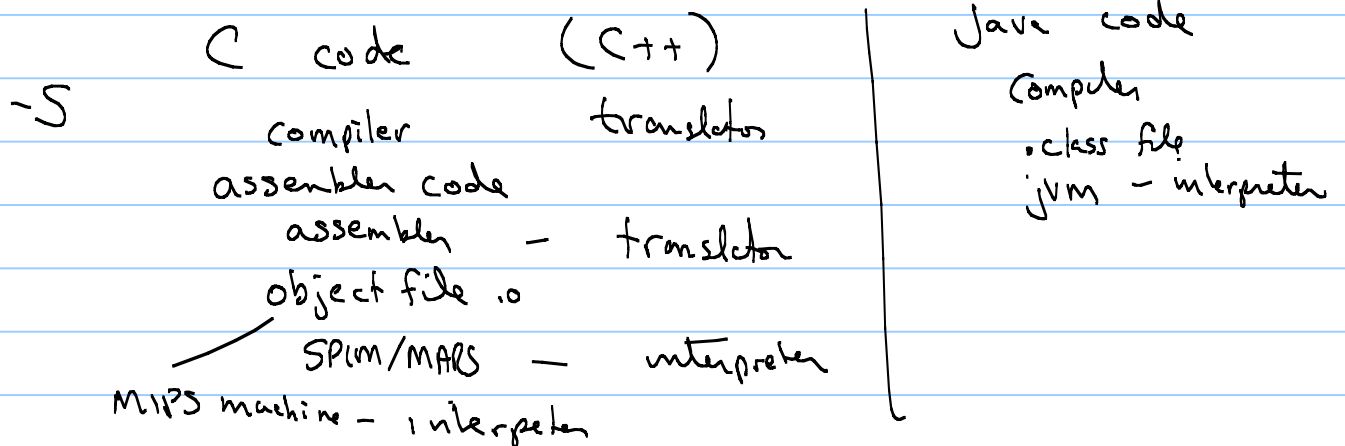 C code (C++)
-S
compiler translator
assembler code
assembler - translator
object file .o
SPIM/MARS - interpreter
MIPS machine - interpeter
Java code
Compiler
.class file
jvm - interpreter